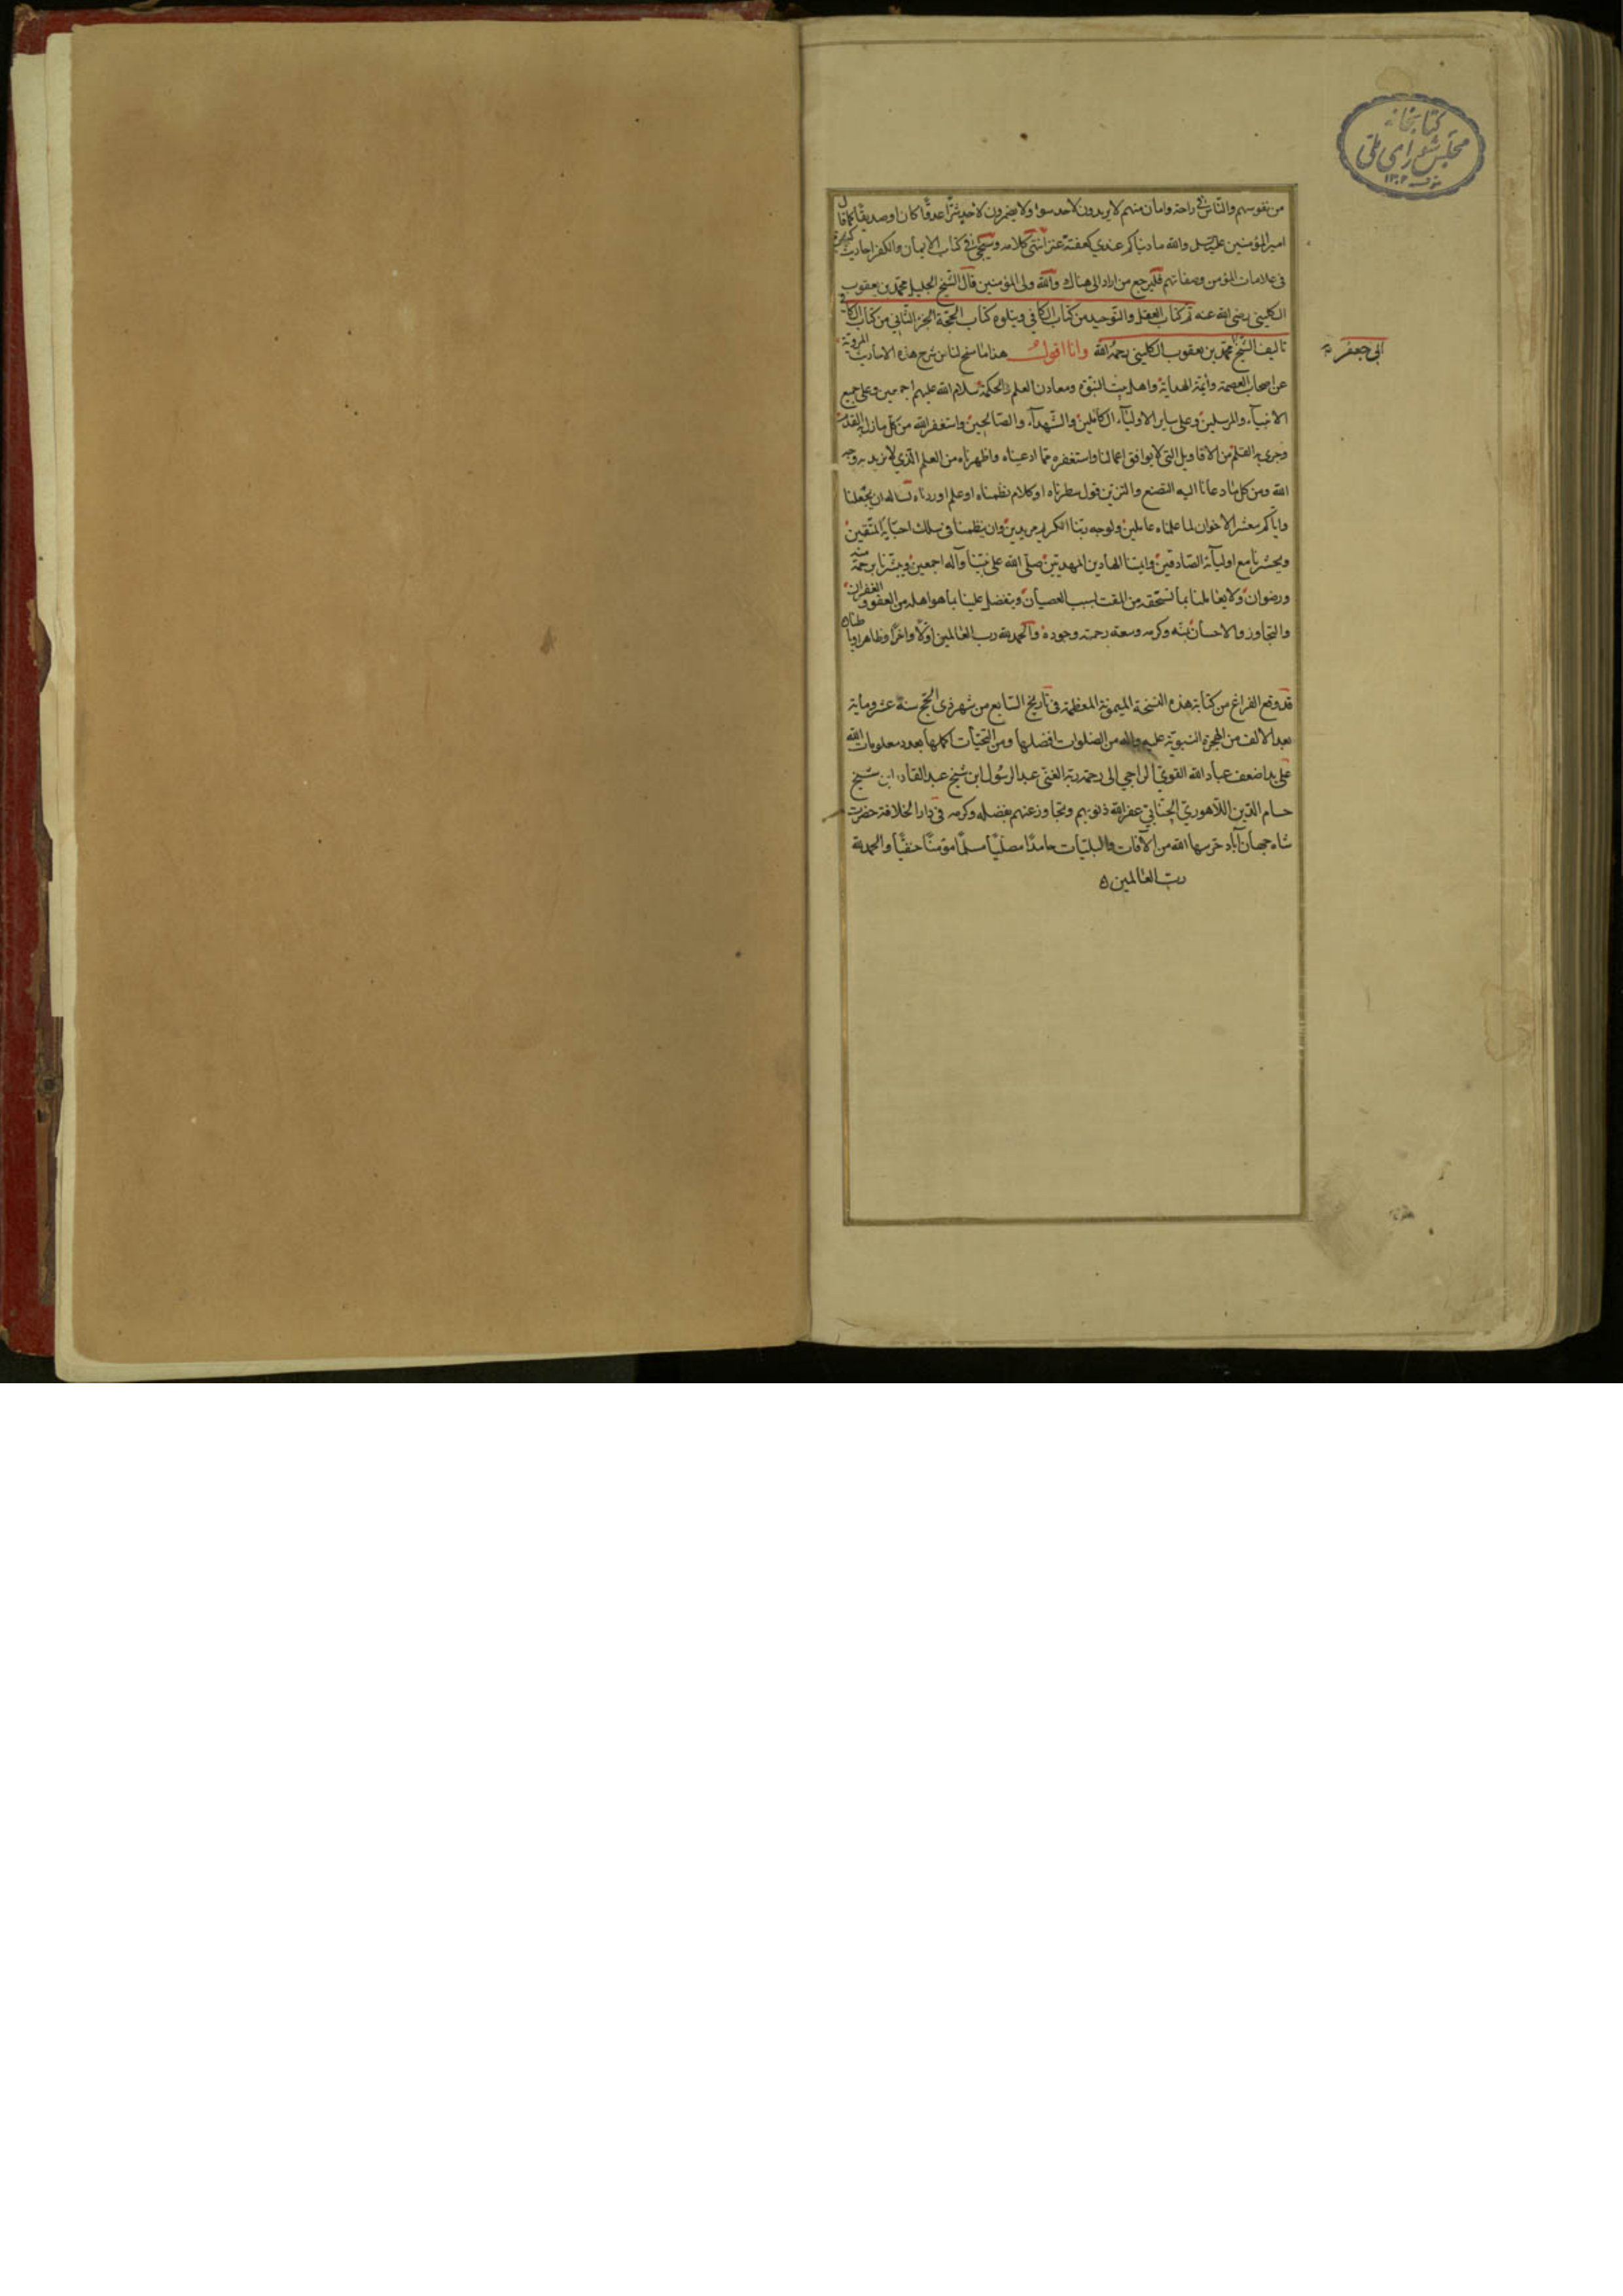 كتابخانه
مجلس شورای ملی
١٣٠٢
من نفوسهم والناس في راحة وامان منهم لا يريدون لاحد سوا ولا يضمرون لاحد شرّا عدوًّا كان او صديقًا كما قال
امير المؤمنين عليه السلم والله ما دنياكم عندي كعفتة عنز انتهى كلامه وسيجيئ في كتاب الايمان والكفر احاديث كثيرة
في علامات المؤمن وصفاتهم فليرجع من اراد الى هناك والله ولى المؤمنين قال الشيخ الجليل محمد بن يعقوب
الكليني رضى الله عنه تم كتاب العقل والتوحيد من كتاب الكافي ويتلوه كتاب الحجّة الجزء الثاني من كتاب الكافي
تاليف الشيخ محمد بن يعقوب الكليني رحمه الله وانا اقول هذا ما سنح لنا من شرح هذه الاحاديث المروية
ابي جعفر
عن اصحاب العصمة وائمة الهداية واهل بيت النبوة ومعادن العلم والحكمة سلام الله عليهم اجمعين وعلى جميع
الانبياء والمرسلين وعلى ساير الاولياء الكاملين والشهداء والصالحين واستغفر الله من كل ما زل به القدم
وجرى به القلم من الاقاويل التي لا يوافق اعمالنا واستغفره مما ادعيناه واظهرناه من العلم الذي لا نريد به وجه
الله ومن كل ما دعانا اليه التصنع والتزين قول سطرناه او كلام نظمناه او علم اوردناه نساله ان يجعلنا
واياكم معشر الاخوان لما علمناه عاملين ولوجه ربنا الكريم مريدين وان ينظمنا في سلك احبايه المتقين
ويحشرنا مع اوليائه الصادقين وايمتنا الهادين المهديين صلى الله على نبينا وآله اجمعين ويبشرنا برحمة منه
ورضوان ولا يعاملنا بما نستحقه من المقت لسبب العصيان ويتفضل علينا بما هو اهله من العفو والغفران
والتجاوز والاحسان بمنّه وكرمه وسعة رحمته وجوده والحمد لله رب العالمين اوّلًا واخرًا وظاهرا وباطنا
قد وقع الفراغ من كتابة هذه النسخة الميمونة المعظمة في تاريخ السابع من شهر ذى الحج سنة عشر ومأية
بعد الالف من الهجرة النبوية عليه واله من الصلوات افضلها ومن التحيات اكملها بعدد معلومات الله
على يد اضعف عباد الله القوي الراجي الى رحمة ربه الغني عبد الرسول ابن شيخ عبد القادر ابن شيخ
حسام الدين اللاهوري غفر الله ذنوبهم وتجاوز عنهم بفضله وكرمه في دار الخلافة حضرت
شاه جهان آباد حرسها الله من الآفات والبليات حامدًا مصليًا مسلمًا مؤمنًا حنفيًا والحمد لله
رب العالمين